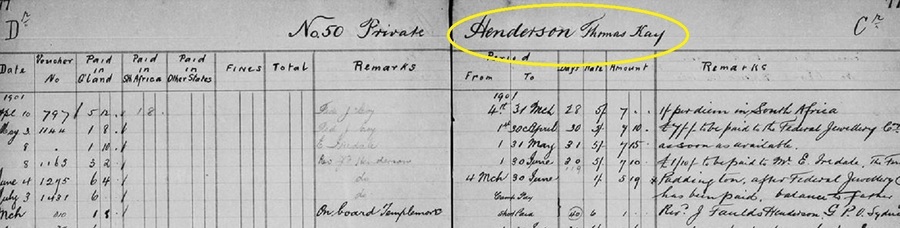 Dr No. 50 Private Henderson Thomas Kay Cr
Date Voucher No Paid in Q'land Paid in Sth Africa Paid in Other States FINES Total Remarks Period From To Days Rate Amount Remarks
1901 1901
Apl 10 797 5 12 18 4th 31 Mch 28 5/ 7 1/ per diem in South Africa
May 3 1144 1 8 1st 30 April 30 5/ 7 10 to be paid to the Federal Jewellery Co
8 1 10 1 31 May 31 5/ 7 15 as soon as available.
8 1163 3 2 Henderson 1 30 June 30 5/ 7 10 £1/10/- to be paid to Mr E. Iredale, The
June 4 1275 6 4 do 4 Mch 30 June 1/ 5 19 Paddington, after Federal Jewellery
July 3 1431 6 do has been paid. balance to father
Mch On board Templemore 6 1 Revd. J Faulds Henderson G.P.O. Sydney